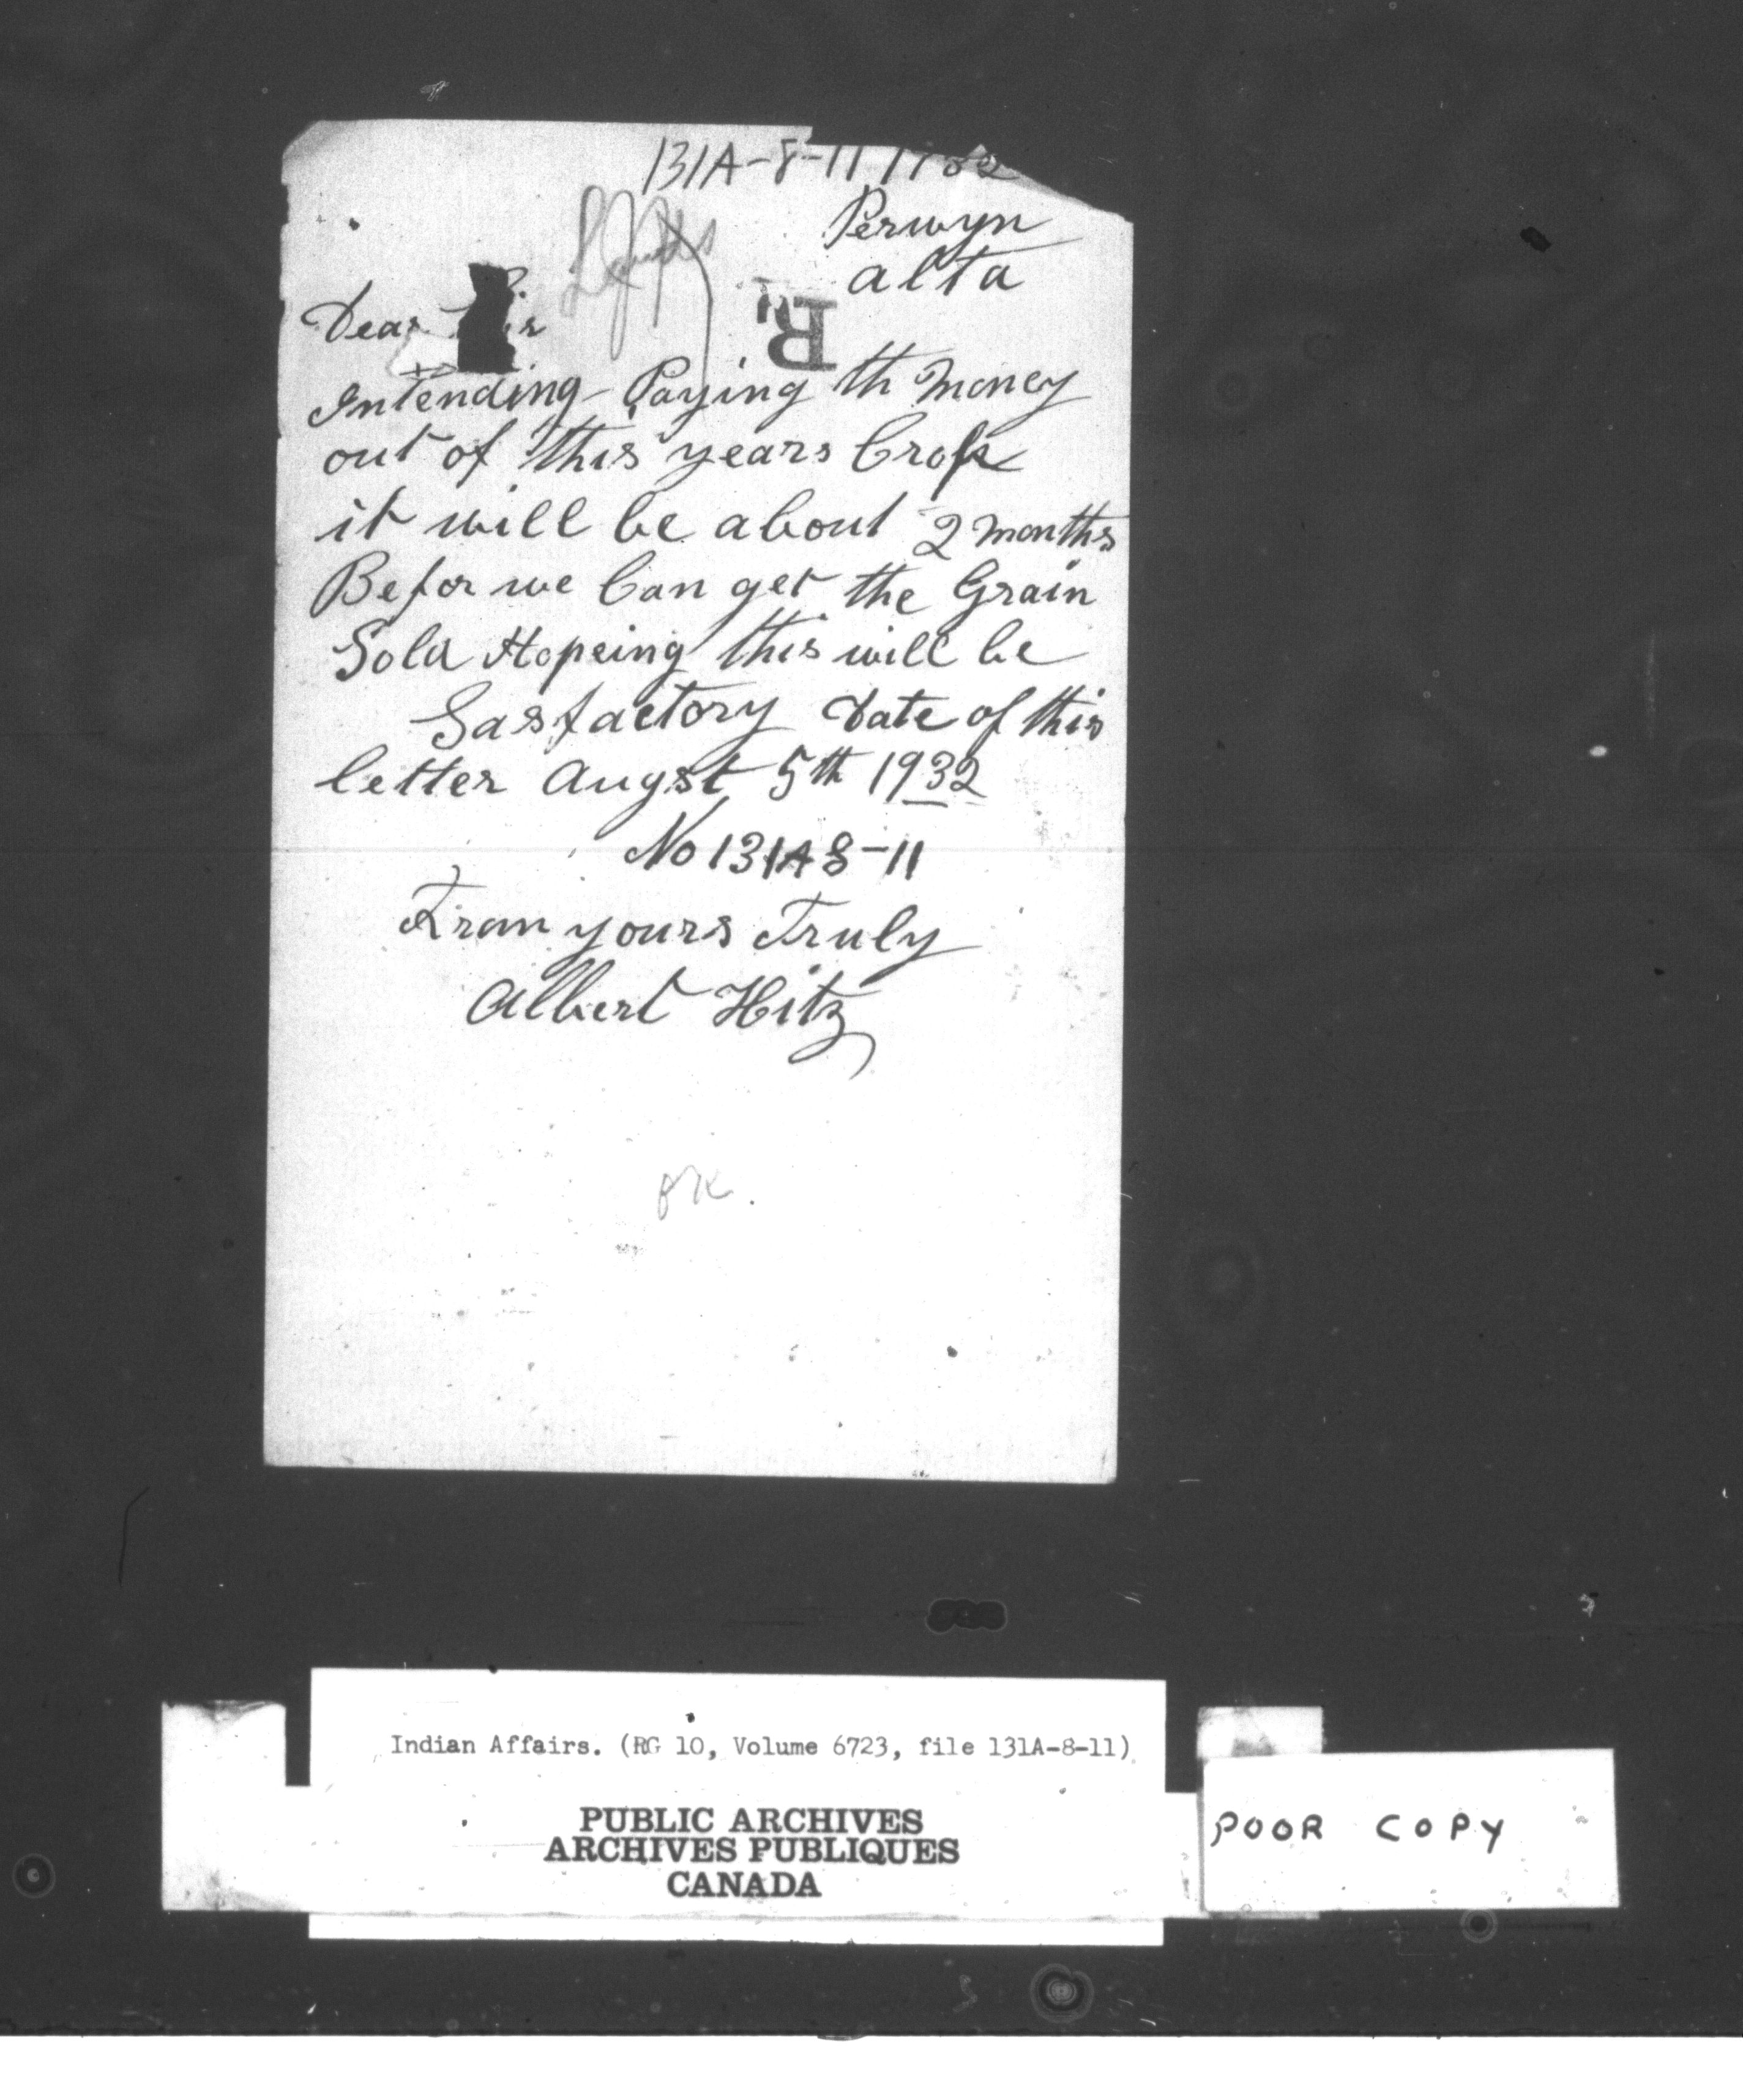 131A-8-11
Perwyn
alta
R
Dear
Intending Paying th Money
out of this years Crop
it will be about 2 months
Befor we Can get the Grain
Sold Hopeing this will be
Sasfactory Date of this
letter Augst 5th 1932
No 131A8-11
From yours Truly
Albert Hitz
OK.
Indian Affairs. (RG 10, Volume 6723, file 131A-8-11)
PUBLIC ARCHIVES
ARCHIVES PUBLIQUES
CANADA
POOR COPY